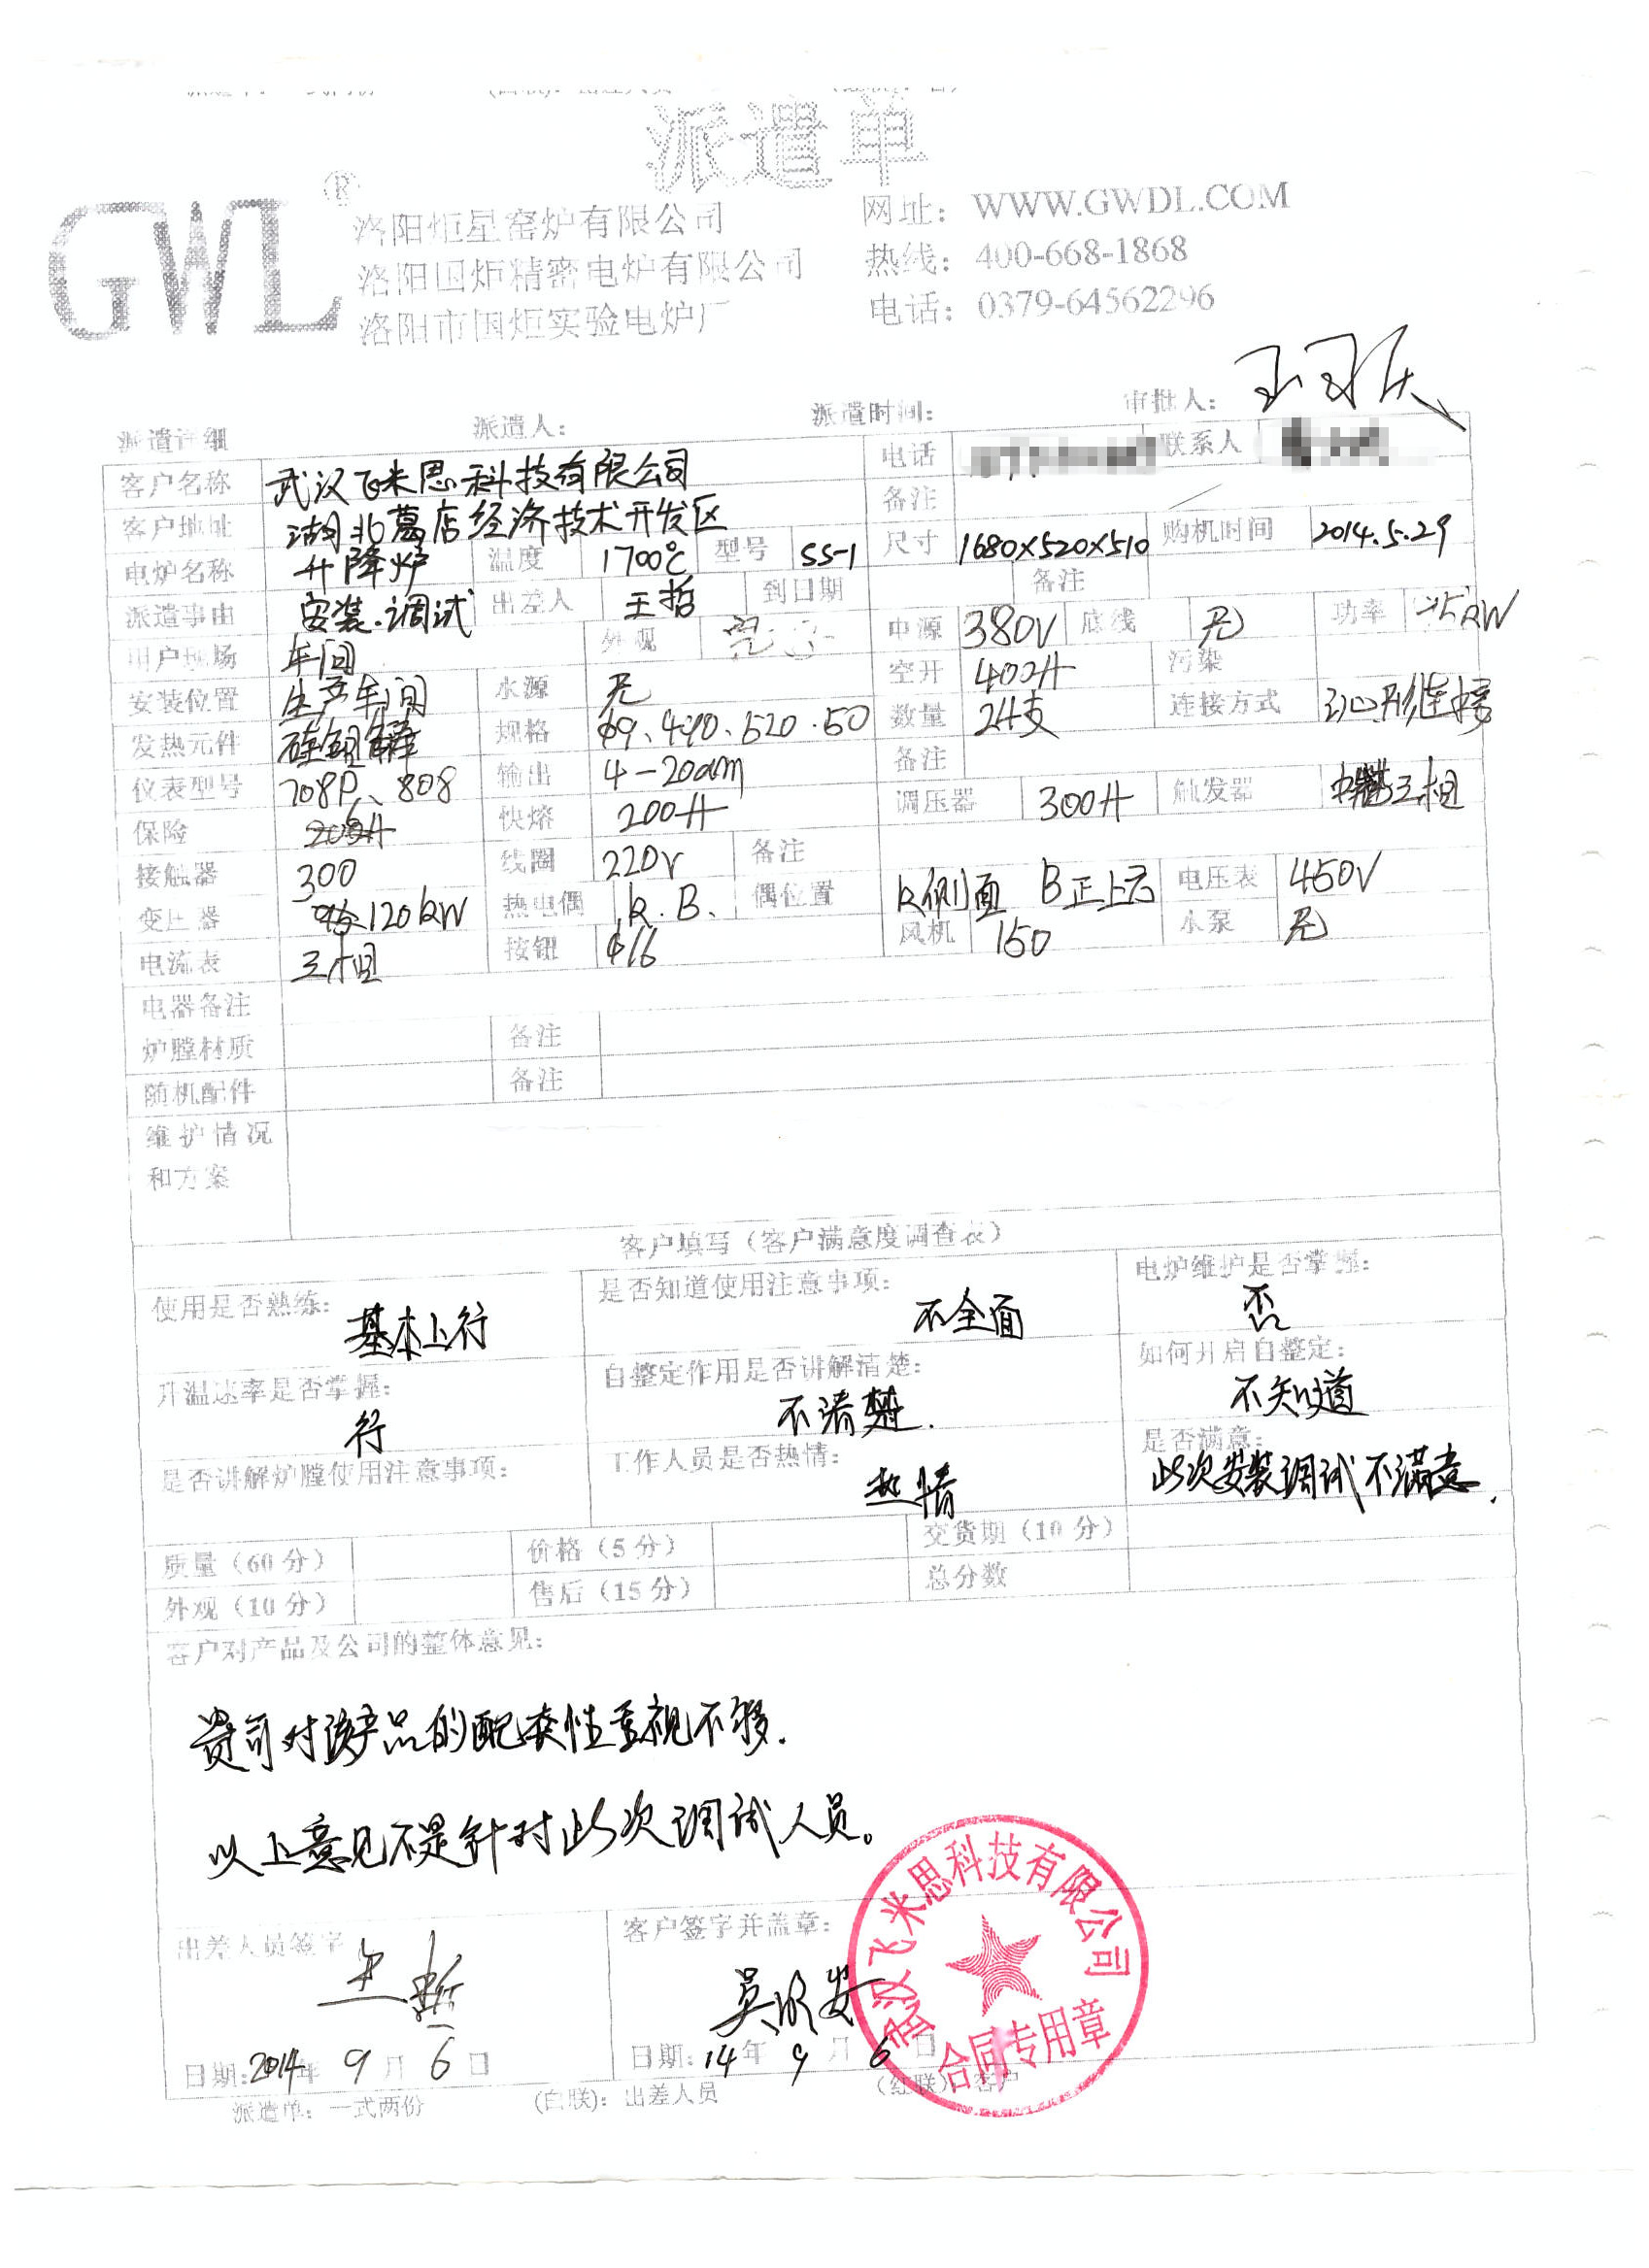 派遣单
GWL®
洛阳炬星窑炉有限公司
网址：WWW.GWDL.COM
洛阳国炬精密电炉有限公司
热线：400-668-1868
洛阳市国炬实验电炉厂
电话：0379-64562296
派遣详细 派遣人： 派遣时间： 审批人：
客户名称 武汉飞米思科技有限公司 电话 联系人
客户地址 湖北葛店经济技术开发区 备注
电炉名称 升降炉 温度 1700℃ 型号 SS-1 尺寸 1680×520×510 购机时间 2014.5.29
派遣事由 安装.调试 出差人 王哲 到日期 备注
用户现场 车间 外观 电源 380V 底线 无 功率 KW
安装位置 生产车间 水源 无 空开 400A 污染
发热元件 硅钼棒 规格 φ9、490、520.50 数量 24支 连接方式 形连接
仪表型号 708P、808 输出 4-20am 备注
保险 快熔 200A 调压器 300A 触发器 三相
接触器 300 线圈 220V 备注
变压器 120KW 热电偶 K.B. 偶位置 K侧面 B正上方 电压表 450V
电流表 三相 按钮 φ16 风机 150 水泵 无
电器备注
炉膛材质 备注
随机配件 备注
维护情况
和方案
客户填写（客户满意度调查表）
使用是否熟练： 基本上行 是否知道使用注意事项： 不全面 电炉维护是否掌握： 否
升温速率是否掌握： 行 自整定作用是否讲解清楚： 不清楚. 如何开启自整定： 不知道
是否讲解炉膛使用注意事项： 工作人员是否热情： 热情 是否满意： 此次安装调试不满意.
质量（60分） 价格（5分） 交货期（10分）
外观（10分） 售后（15分） 总分数
客户对产品及公司的整体意见：
贵司对该产品的配套性重视不够.
以上意见不是针对此次调试人员。
出差人员签字 王哲 客户签字并盖章：
武汉飞米思科技有限公司
合同专用章
日期：2014年 9月 6日 日期：14年 9月 6日
派遣单：一式两份 （白联）：出差人员 （红联）：客户